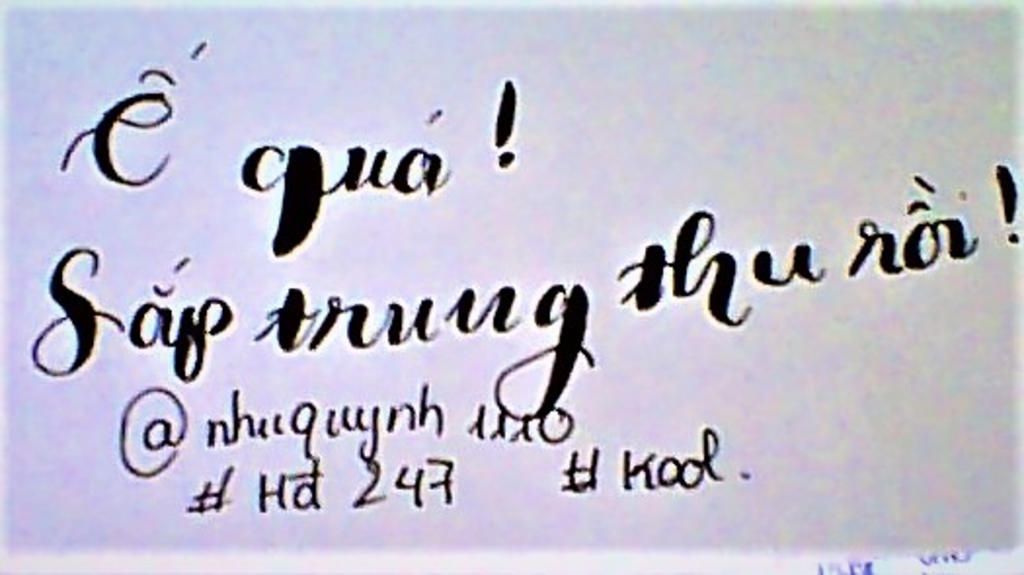 Ế quá !
Sắp trung thu rồi !
@nhuquynh 1110
# Hđ 247 # Kool .